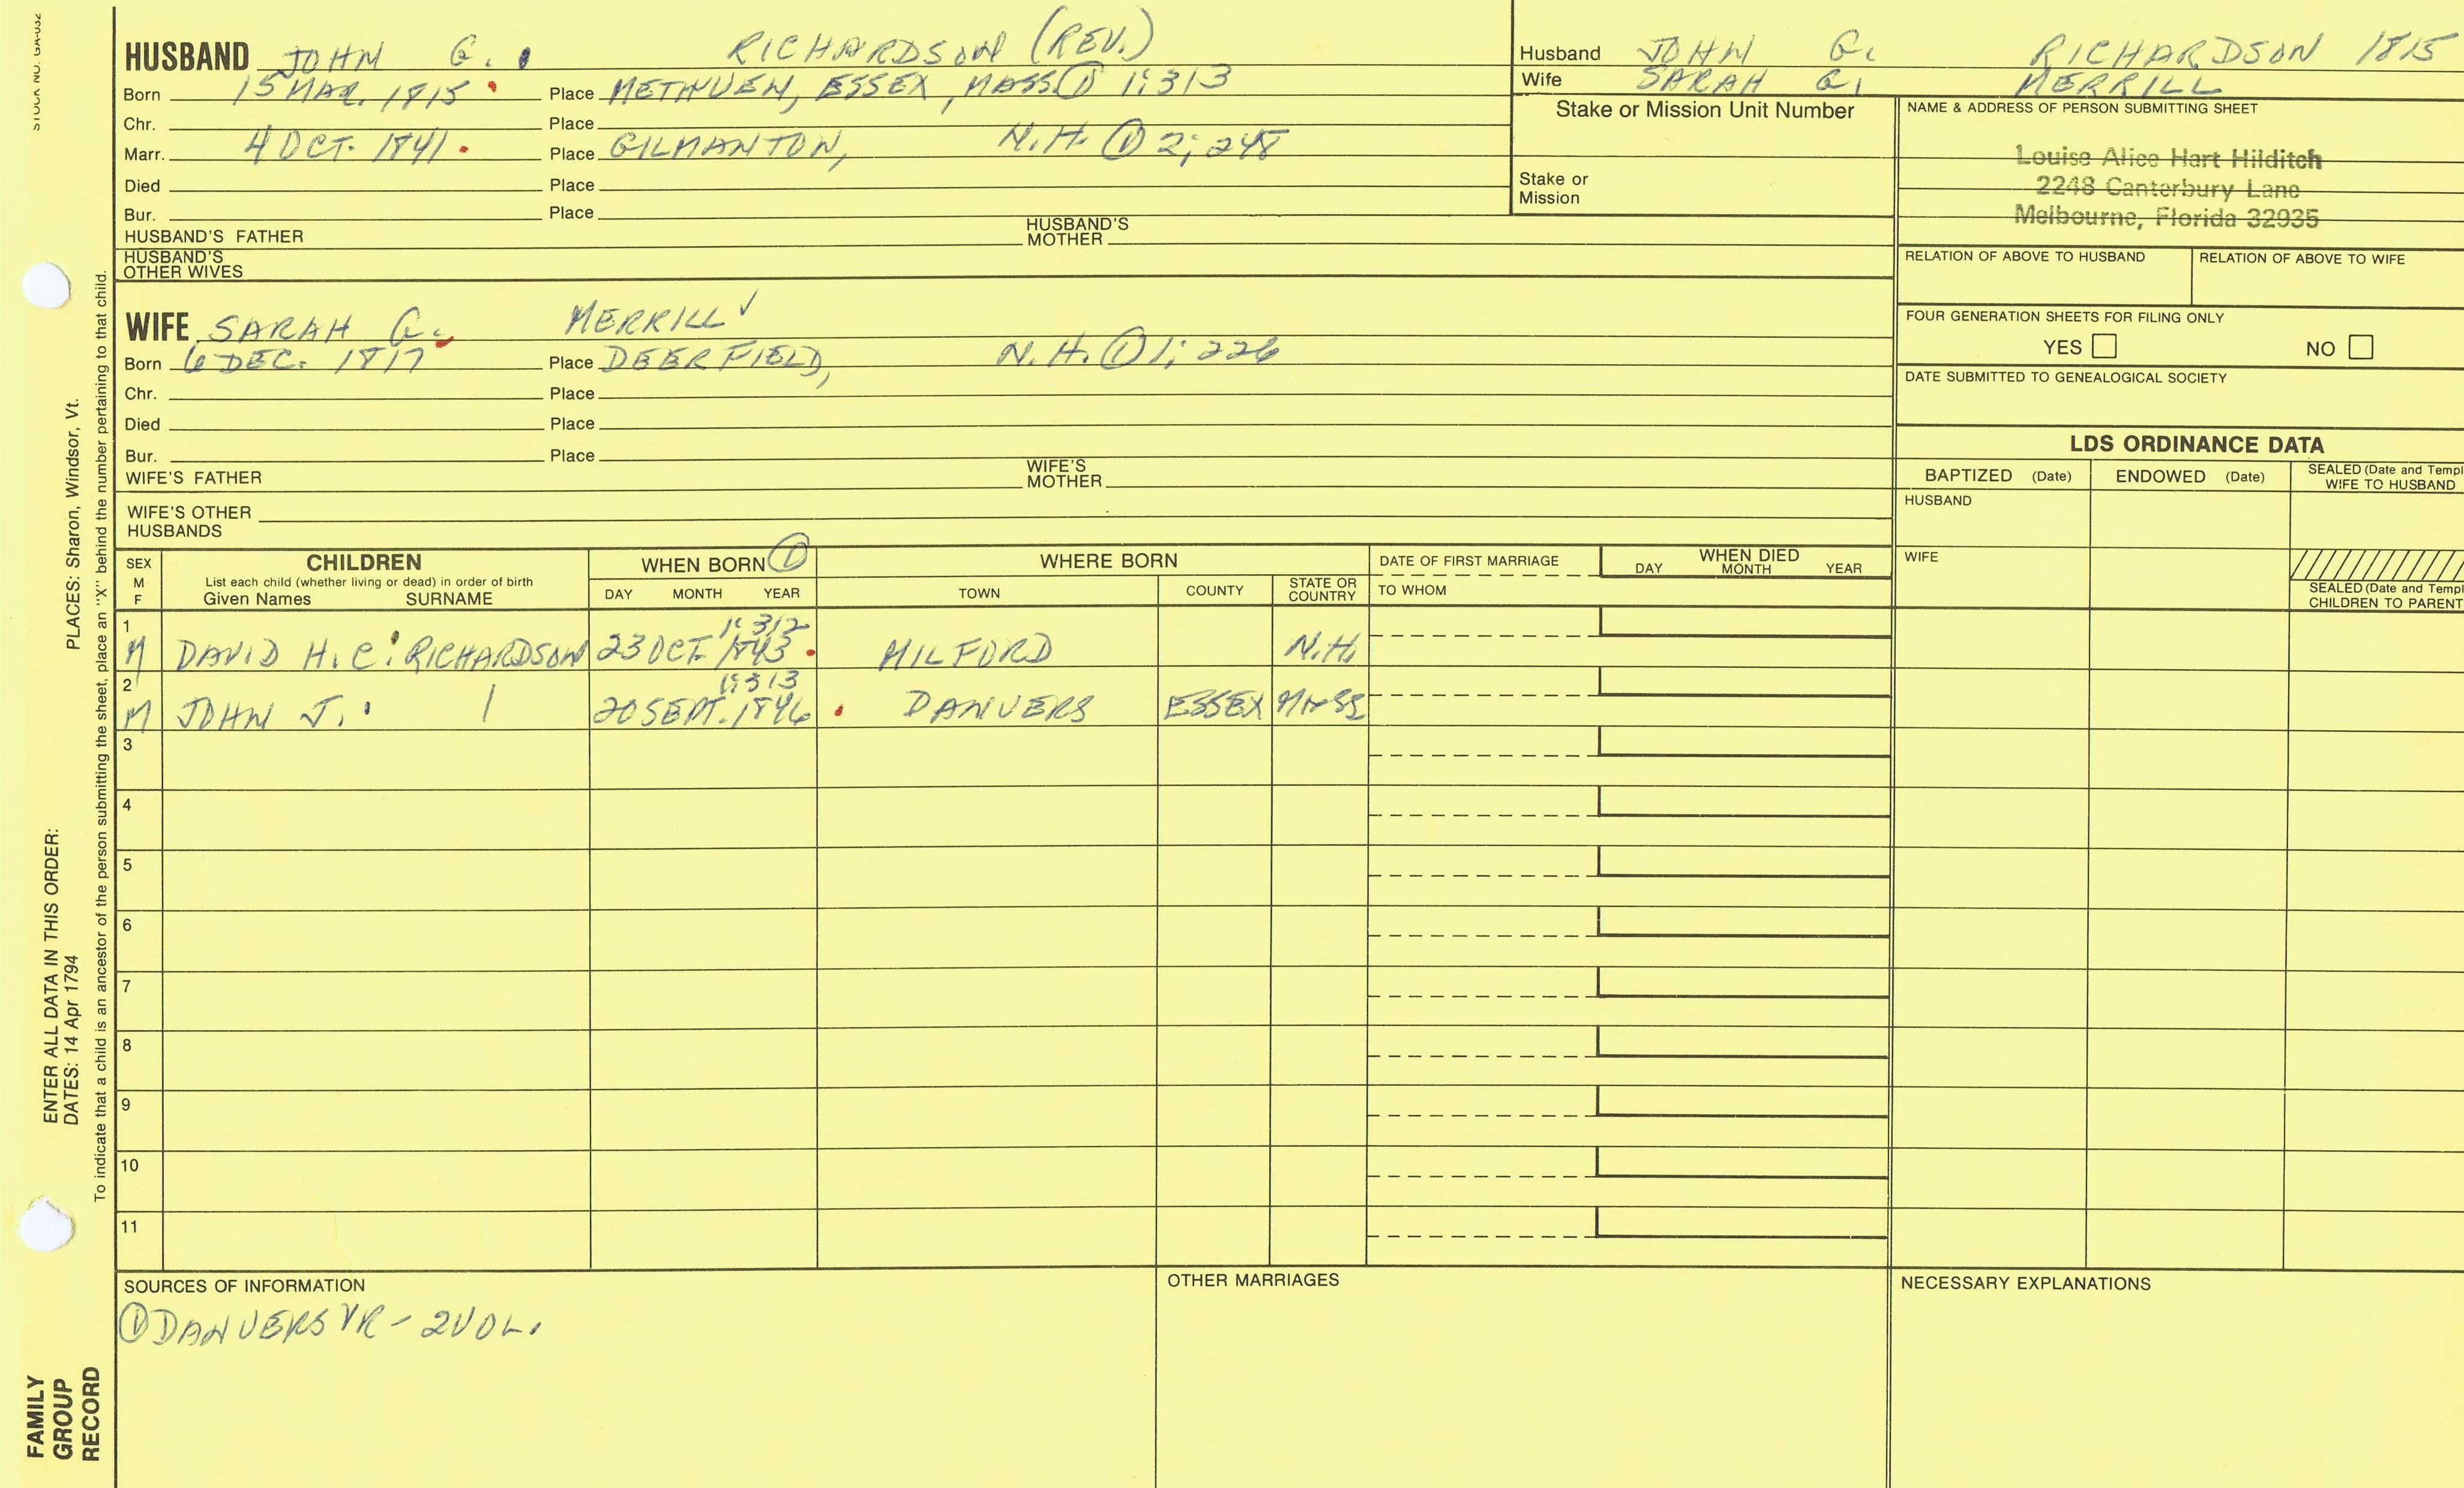 STOCK NO. GA-032
HUSBAND JOHN G. RICHARDSON (REV.)
Born 15 MAR. 1815 Place METHUEN, ESSEX, MASS ① 1:313
Chr. Place
Marr. 4 OCT. 1841 Place GILMANTON, N.H. ① 2; 248
Died Place
Bur. Place
HUSBAND'S FATHER HUSBAND'S MOTHER
HUSBAND'S OTHER WIVES
Husband JOHN G. RICHARDSON 1815
Wife SARAH G. MERRILL
Stake or Mission Unit Number
Stake or Mission
NAME & ADDRESS OF PERSON SUBMITTING SHEET
Louise Alice Hart Hilditch
2248 Canterbury Lane
Melbourne, Florida 32935
RELATION OF ABOVE TO HUSBAND RELATION OF ABOVE TO WIFE
FOUR GENERATION SHEETS FOR FILING ONLY
YES NO
DATE SUBMITTED TO GENEALOGICAL SOCIETY
WIFE SARAH G. MERRILL ✓
Born 6 DEC. 1817 Place DEERFIELD, N.H. ① 1; 226
Chr. Place
Died Place
Bur. Place
WIFE'S FATHER WIFE'S MOTHER
WIFE'S OTHER HUSBANDS
LDS ORDINANCE DATA
BAPTIZED (Date) ENDOWED (Date) SEALED (Date and Templ
WIFE TO HUSBAND
HUSBAND
WIFE
SEALED (Date and Templ
CHILDREN TO PARENT
SEX M F
CHILDREN
List each child (whether living or dead) in order of birth
Given Names SURNAME
WHEN BORN ①
DAY MONTH YEAR
WHERE BORN
TOWN COUNTY STATE OR COUNTRY
DATE OF FIRST MARRIAGE
TO WHOM
WHEN DIED
DAY MONTH YEAR
1 1:312
M DAVID H. C. RICHARDSON 23 OCT. 1843 MILFORD N.H.
2 1:313
M JOHN J. 20 SEPT. 1846 DANVERS ESSEX MASS
3
4
5
6
7
8
9
10
11
SOURCES OF INFORMATION
① DANVERS VR - 2 VOL.
OTHER MARRIAGES
NECESSARY EXPLANATIONS
PLACES: Sharon, Windsor, Vt.
ENTER ALL DATA IN THIS ORDER:
DATES: 14 Apr 1794
To indicate that a child is an ancestor of the person submitting the sheet, place an "X" behind the number pertaining to that child.
FAMILY
GROUP
RECORD